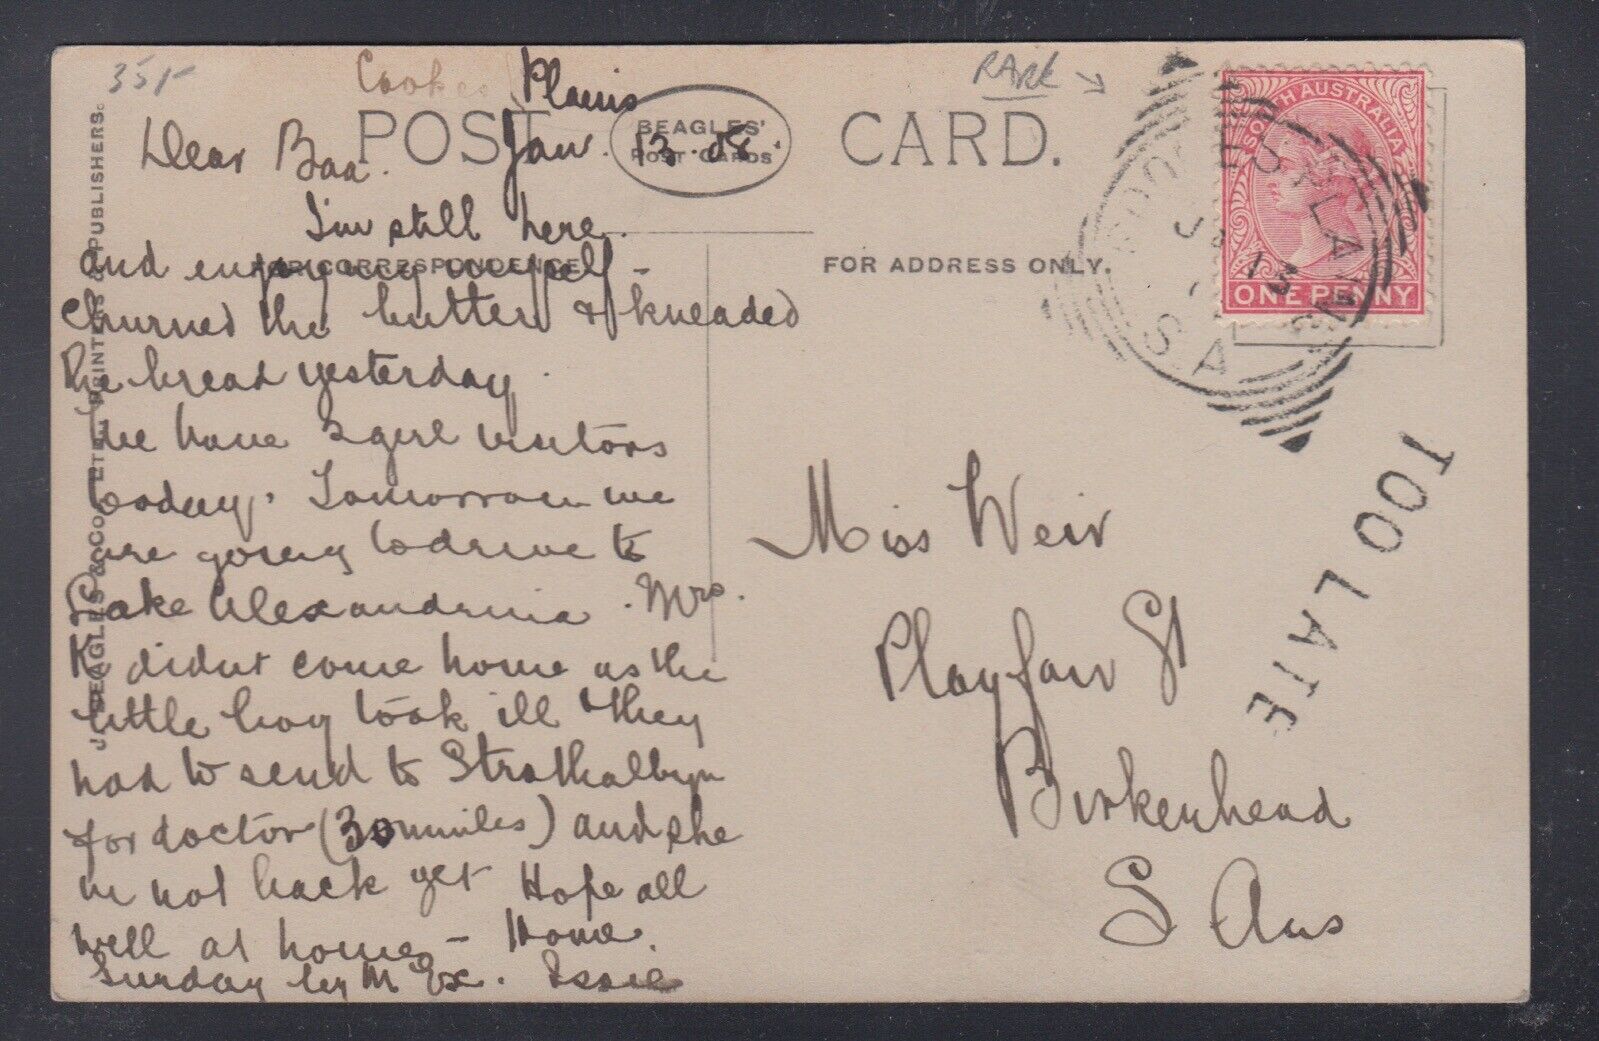 35/-
Cookes Plains
RARE
POST CARD.
BEAGLES'
POST CARDS
Jan. 13. 08.
Dear Baa.
I'm still here.
and enjoying myself -
churned the butter & kneaded
the bread yesterday.
We have 2 girl visitors
today. Tomorrow we
are going to drive to
Lake Alexandrina. Mrs.
K. didnt come home as the
little boy took ill & they
had to send to Strathalbyn
for doctor (30 miles) and she
is not back yet Hope all
well at home - Home
Sunday by M Ex. Essie
FOR CORRESPONDENCE
FOR ADDRESS ONLY.
J. BEAGLES & CO., LTD., PRINTERS & PUBLISHERS.
SOUTH AUSTRALIA
ONE PENNY
COOKES PLAINS
JA 13
S.A
TOO LATE
Miss Weir
Playfair St
Birkenhead
S Aus